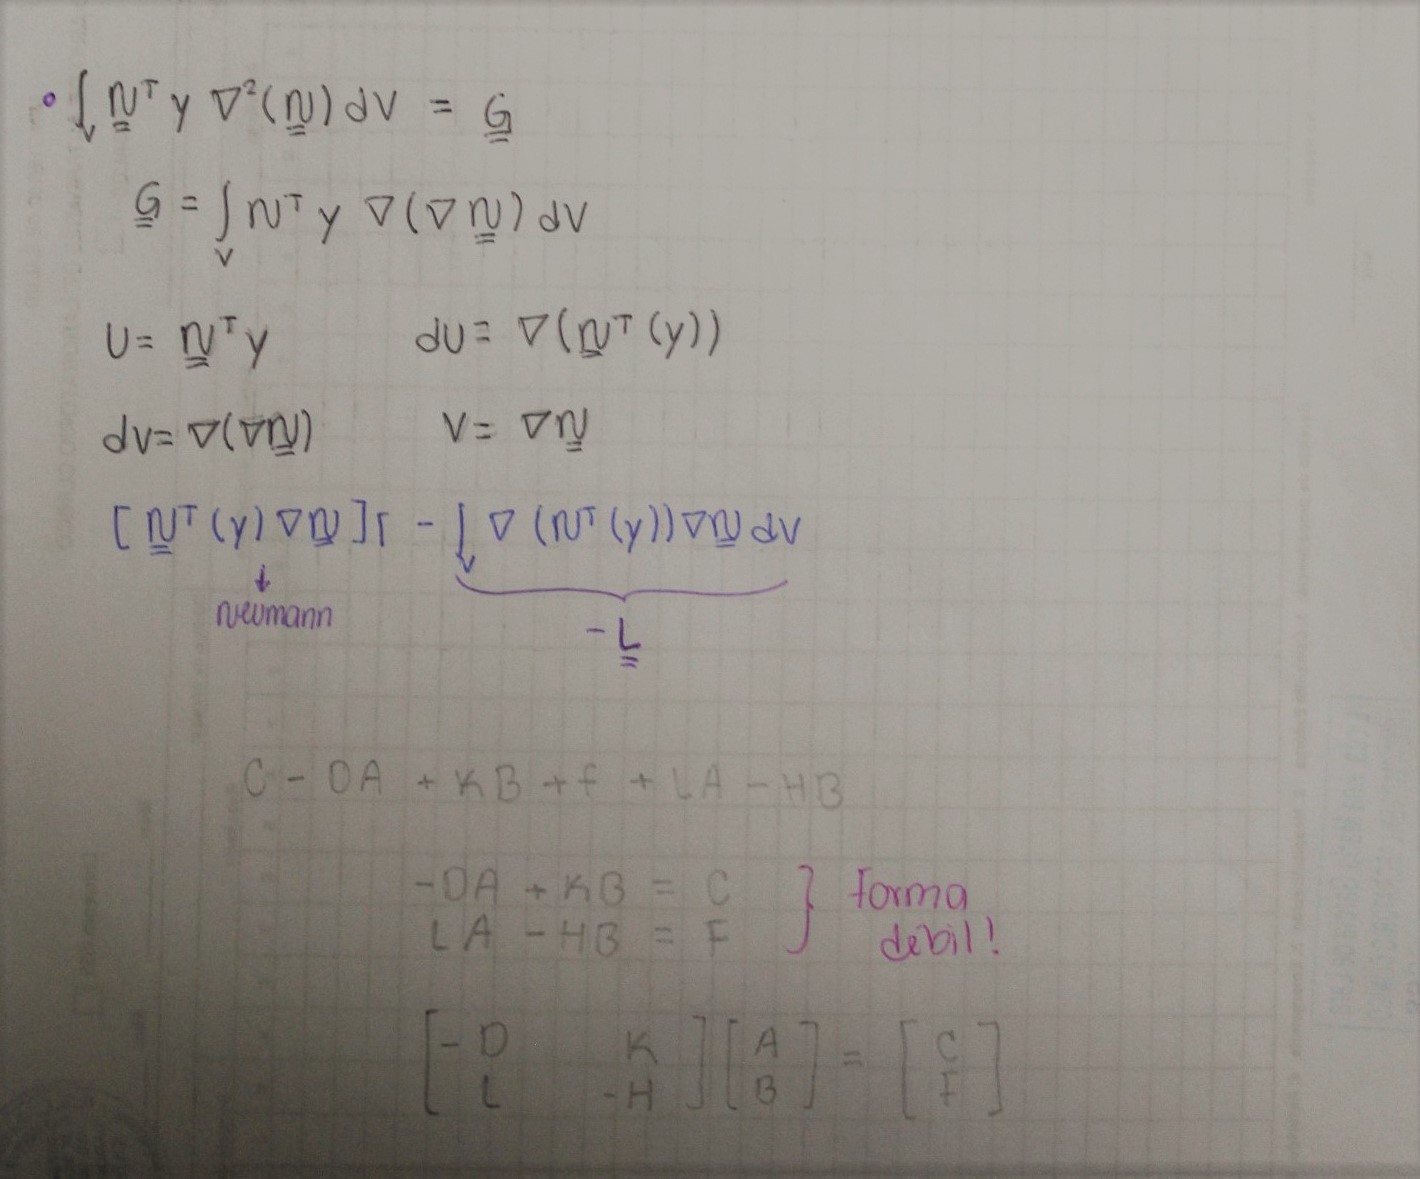 • ∫_V N^T y ∇²(N) dV = G
G = ∫_V N^T y ∇(∇N) dV
U = N^T y dU = ∇(N^T (y))
dV = ∇(∇N) V = ∇N
[N^T (y) ∇N]Γ - ∫_V ∇(N^T (y))∇N dV
↓
Neumann
-L
C - DA + KB + f + LA - HB
-DA + KB = C } Forma
LA - HB = F débil!
[-D K] [A] = [C]
[L -H] [B] [F]